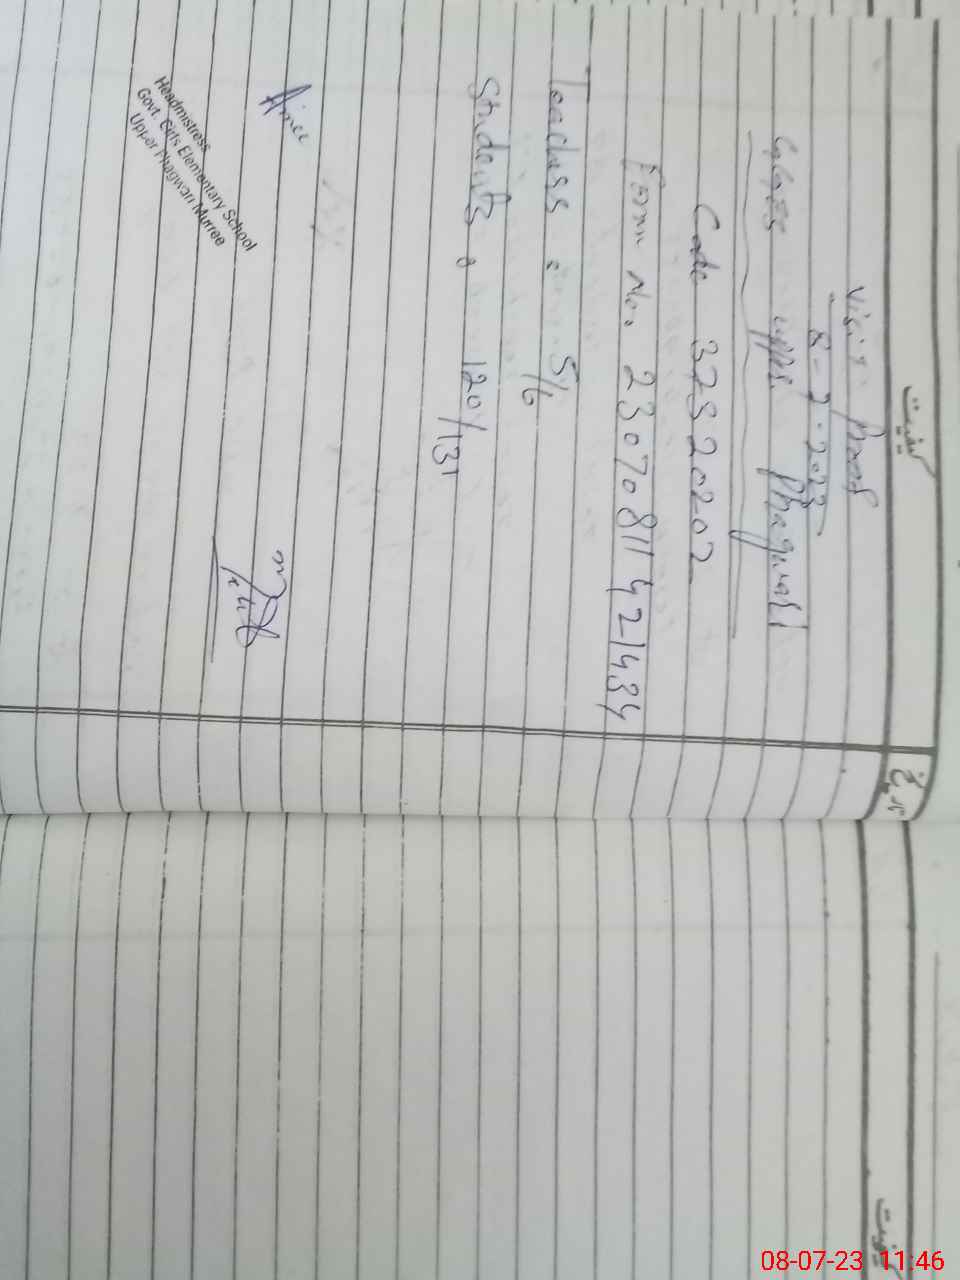 کیفیت
Visit Proof
8-7-2023
GGES upp. Phagwari
Code 37320202
Form No. 23070811421434
Teachers : 5/6
Students : 120/131
Headmistress
Govt. Girls Elementary School
Upper Phagwari Murree
کیفیت
08-07-23 11:46